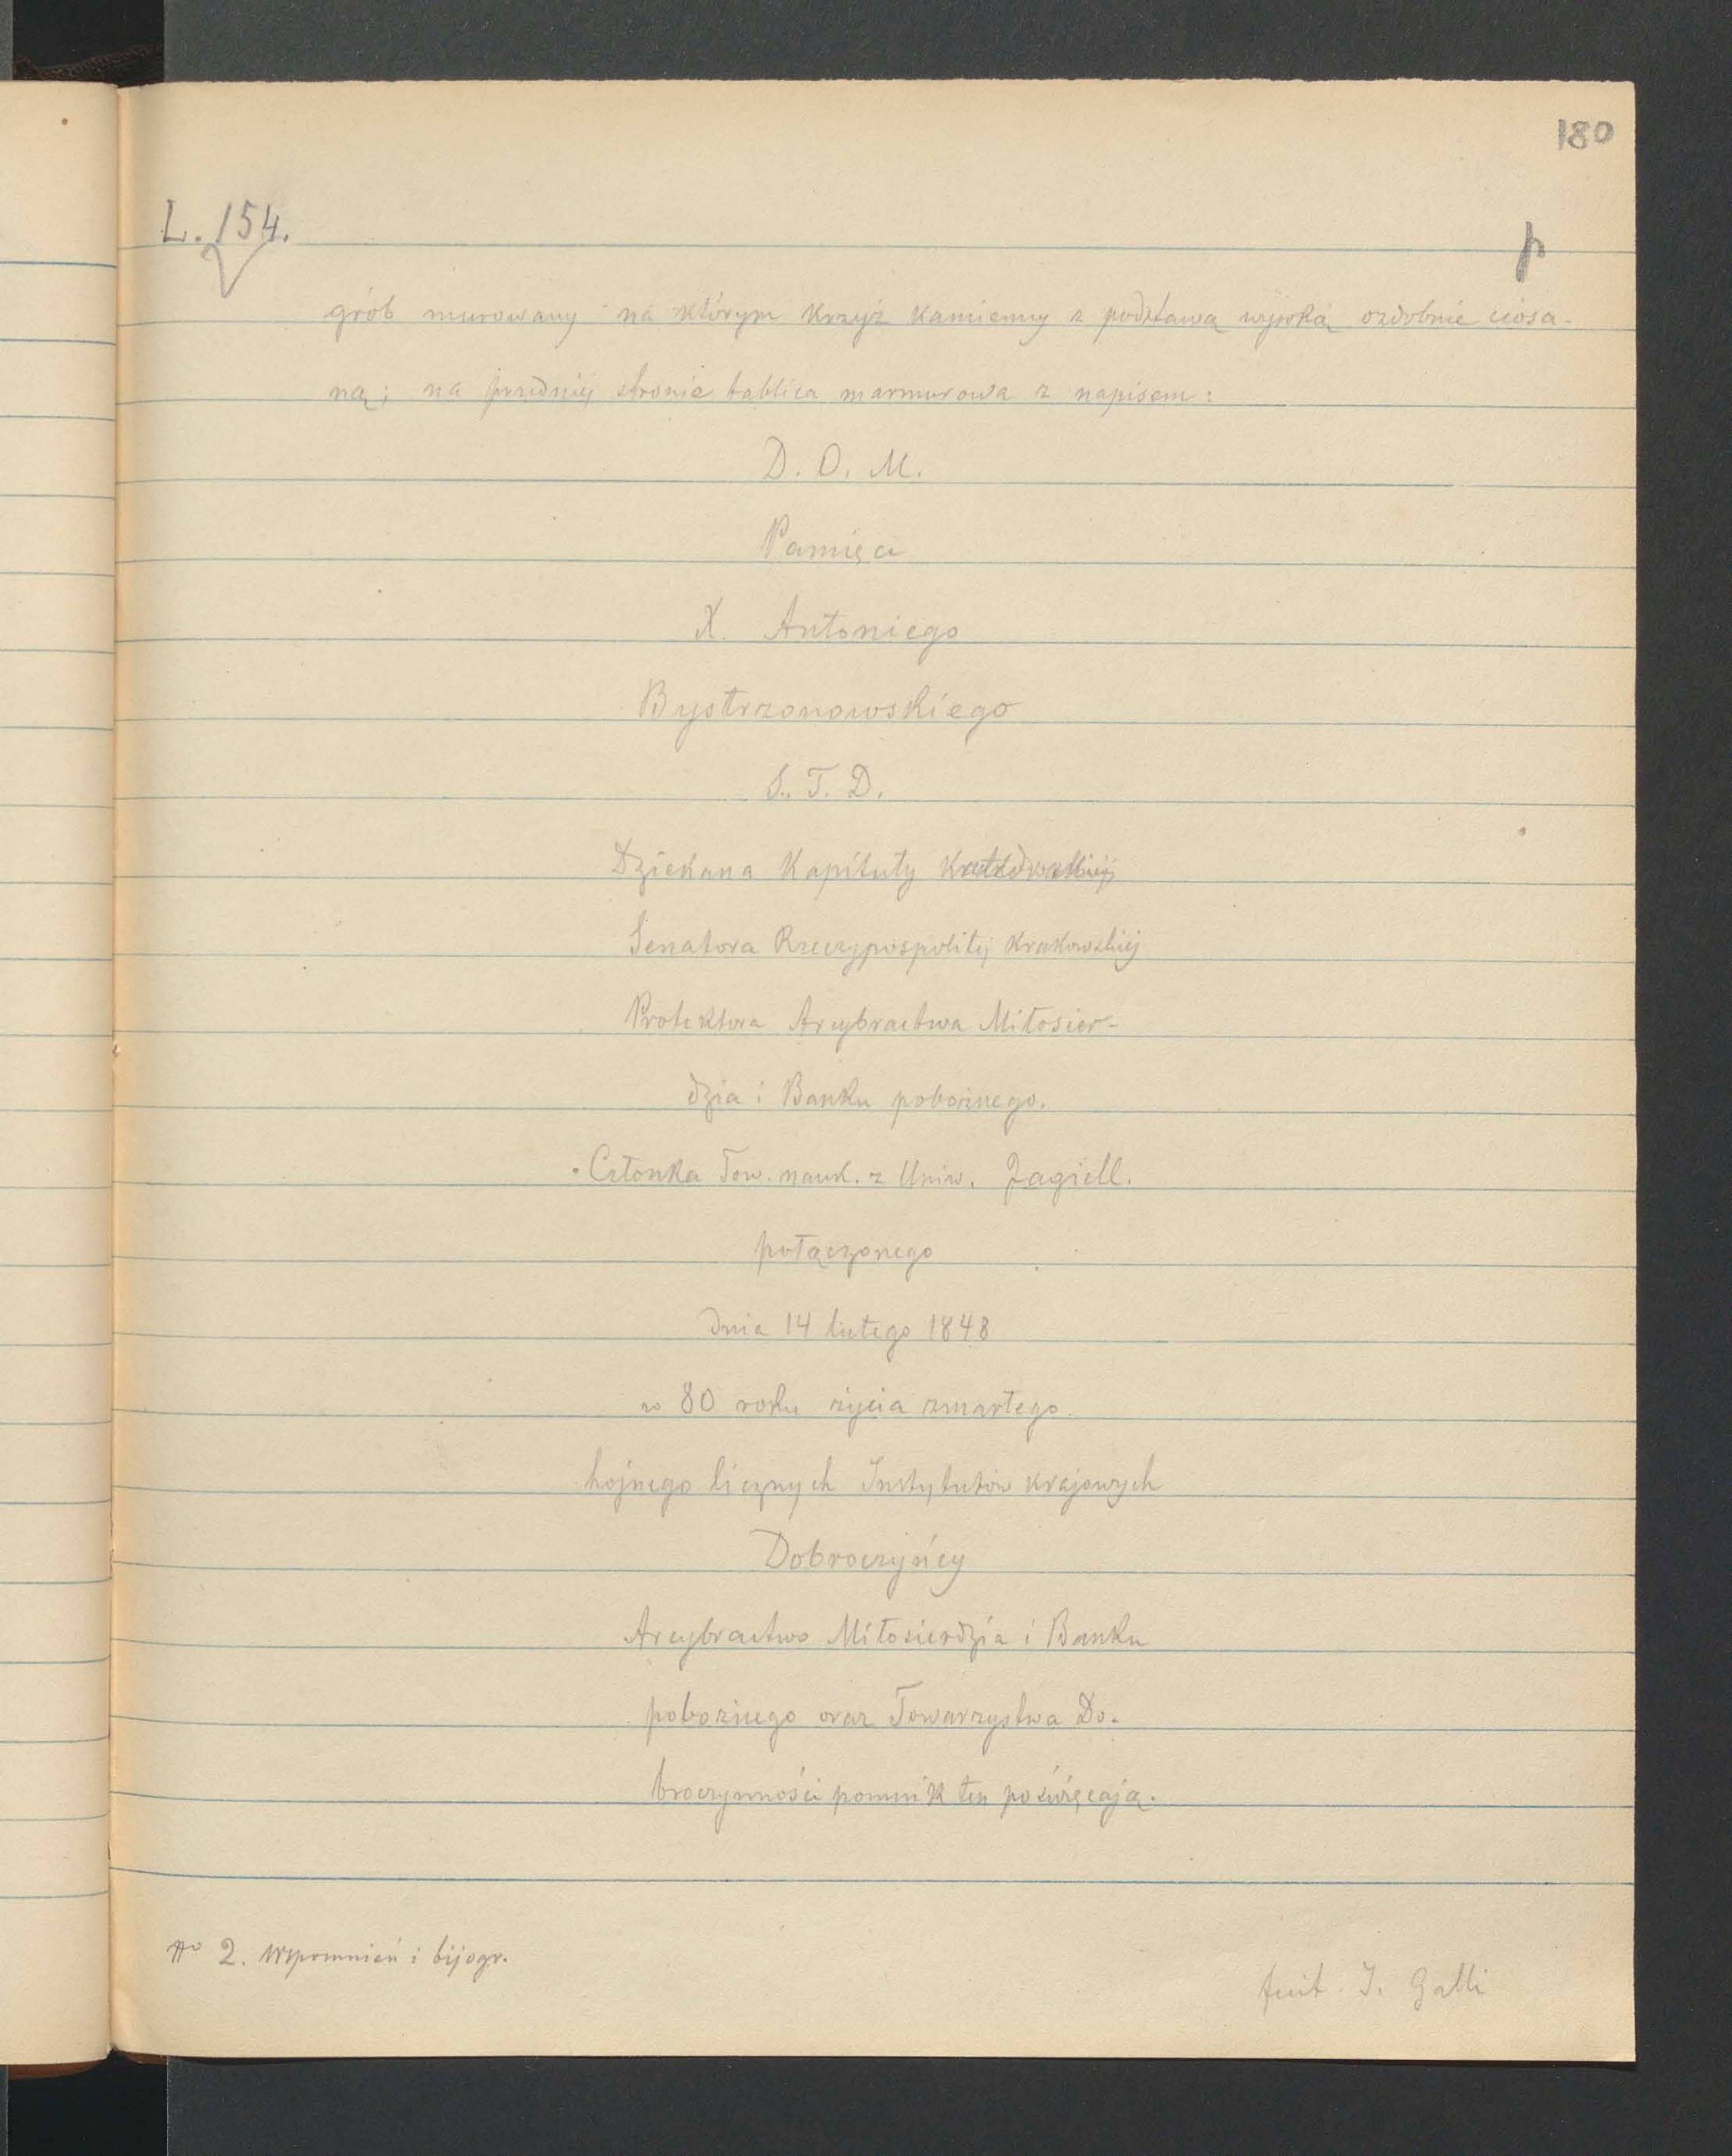 180
L. 154.
p
grób murowany na którym krzyż kamienny z podstawą wysoką ozdobnie ciosa-
ną; na przedniéj stronie tablica marmurowa z napisem:
D. O. M.
Pamięci
X. Antoniego
Bystrzonowskiego
S. T. D.
Dziekana Kapituły
Senatora Rzeczypospolitéj Krakowskiéj
Protektora Arcybractwa Miłosier-
dzia i Banku pobożnego.
Członka Tow. nauk. z Uniw. Jagiell.
połączonego
dnia 14 lutego 1848
w 80 roku życia zmarłego.
hojnego licznych Instytutów krajowych
Dobroczyńcy
Arcybractwo Miłosierdzia i Banku
pobożnego oraz Towarzystwa Do-
broczynności pomnik ten poświęcają.
No 2. Wspomnień i bijogr.
fecit J. Galli